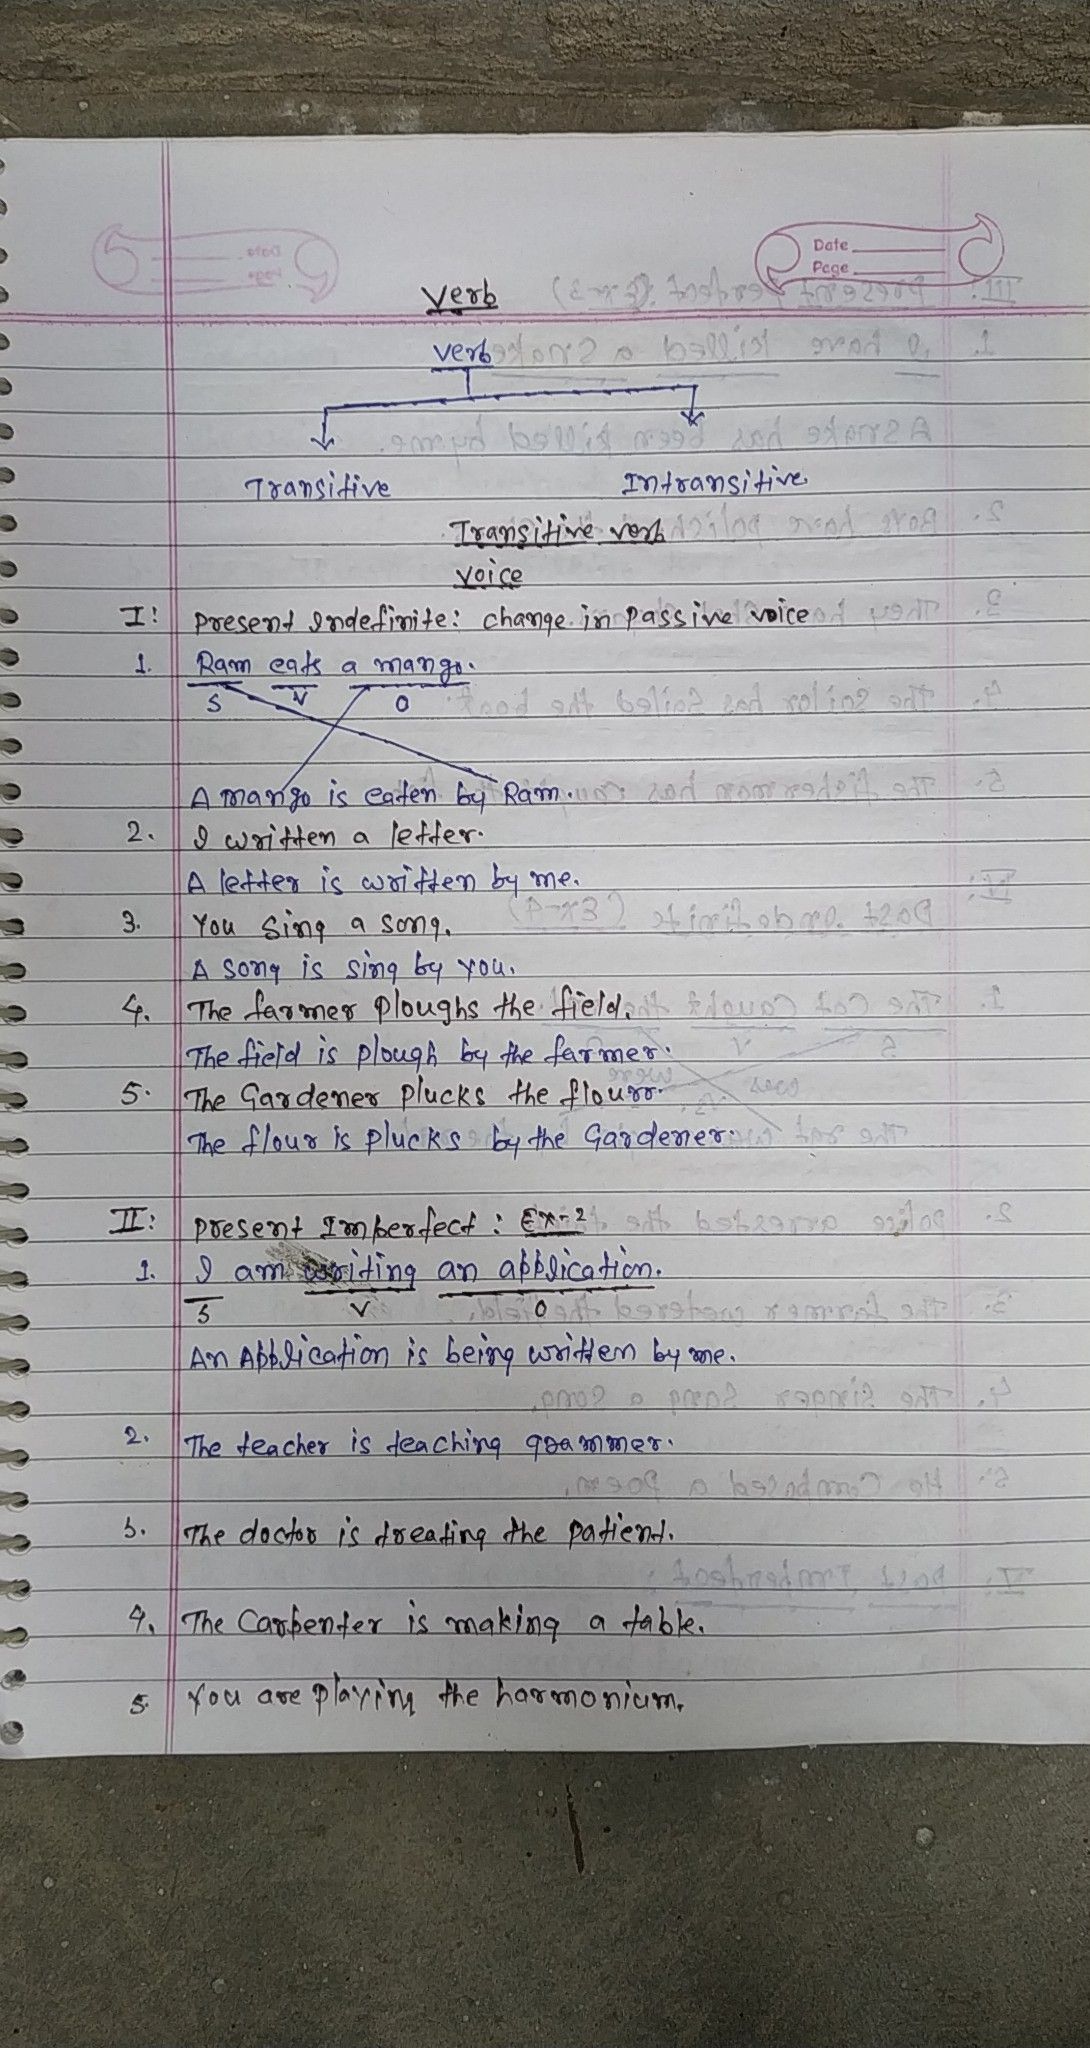 Date
Page
Verb
Verb
Transitive Intransitive
Transitive verb
Voice
I: Present Indefinite: change in Passive voice
1. Ram eats a mango.
S V O
A mango is eaten by Ram.
2. I written a letter.
A letter is written by me.
3. You sing a song.
A song is sing by you.
4. The farmer ploughs the field.
The field is plough by the farmer.
5. The Gardener plucks the
The flour is plucks by the Gardener.
II: Present Imperfect: Ex-2
1. I am writing an application.
S V O
An Application is being written by me.
2. The teacher is teaching grammer.
3. The doctor is treating the patient.
4. The Carpenter is making a table.
5. You are playing the harmonium.